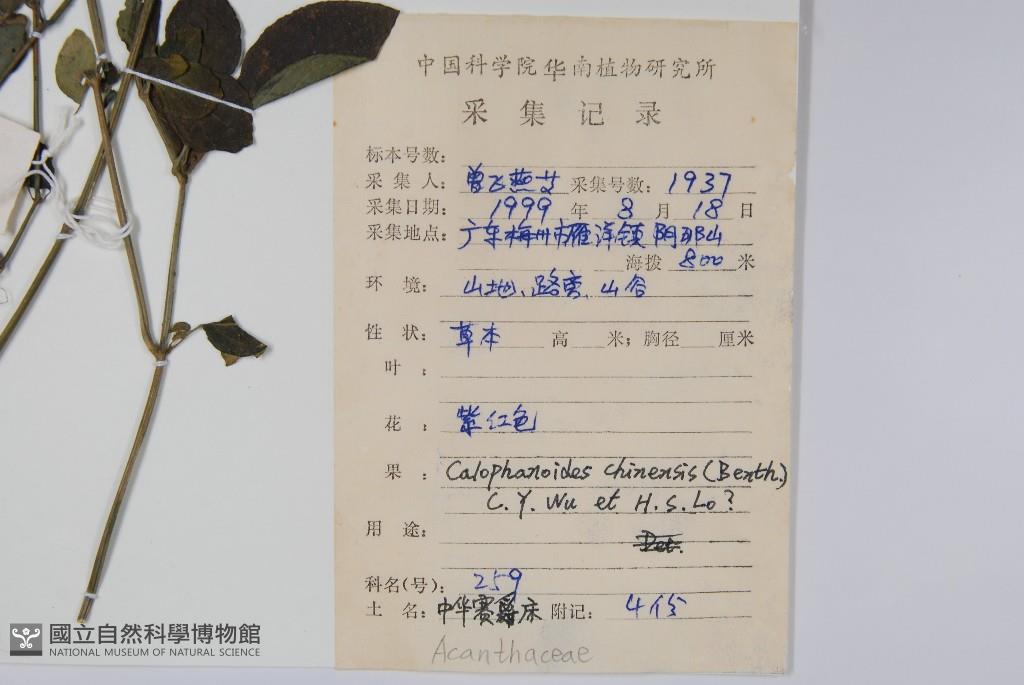 中国科学院华南植物研究所
采集记录
标本号数:
采集人: 曾飞燕艾 采集号数: 1937
采集日期: 1999 年 8 月 18 日
采集地点: 广东梅州市雁洋镇阴那山
海拨 800 米
环境: 山地、路旁、山谷
性状: 草本 高 米; 胸径 厘米
叶:
花: 紫红色
果: Calophanoides chinensis (Benth.)
C. Y. Wu et H. S. Lo?
用途:
Det.
科名(号): 259
土名: 中华赛爵床 附记: 4份
Acanthaceae
國立自然科學博物館
NATIONAL MUSEUM OF NATURAL SCIENCE